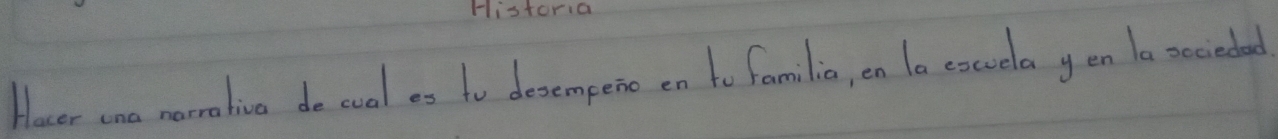 Historia
Hacer una narrativa de cual es tu desempeño en tu familia, en la escuela y en la sociedad.